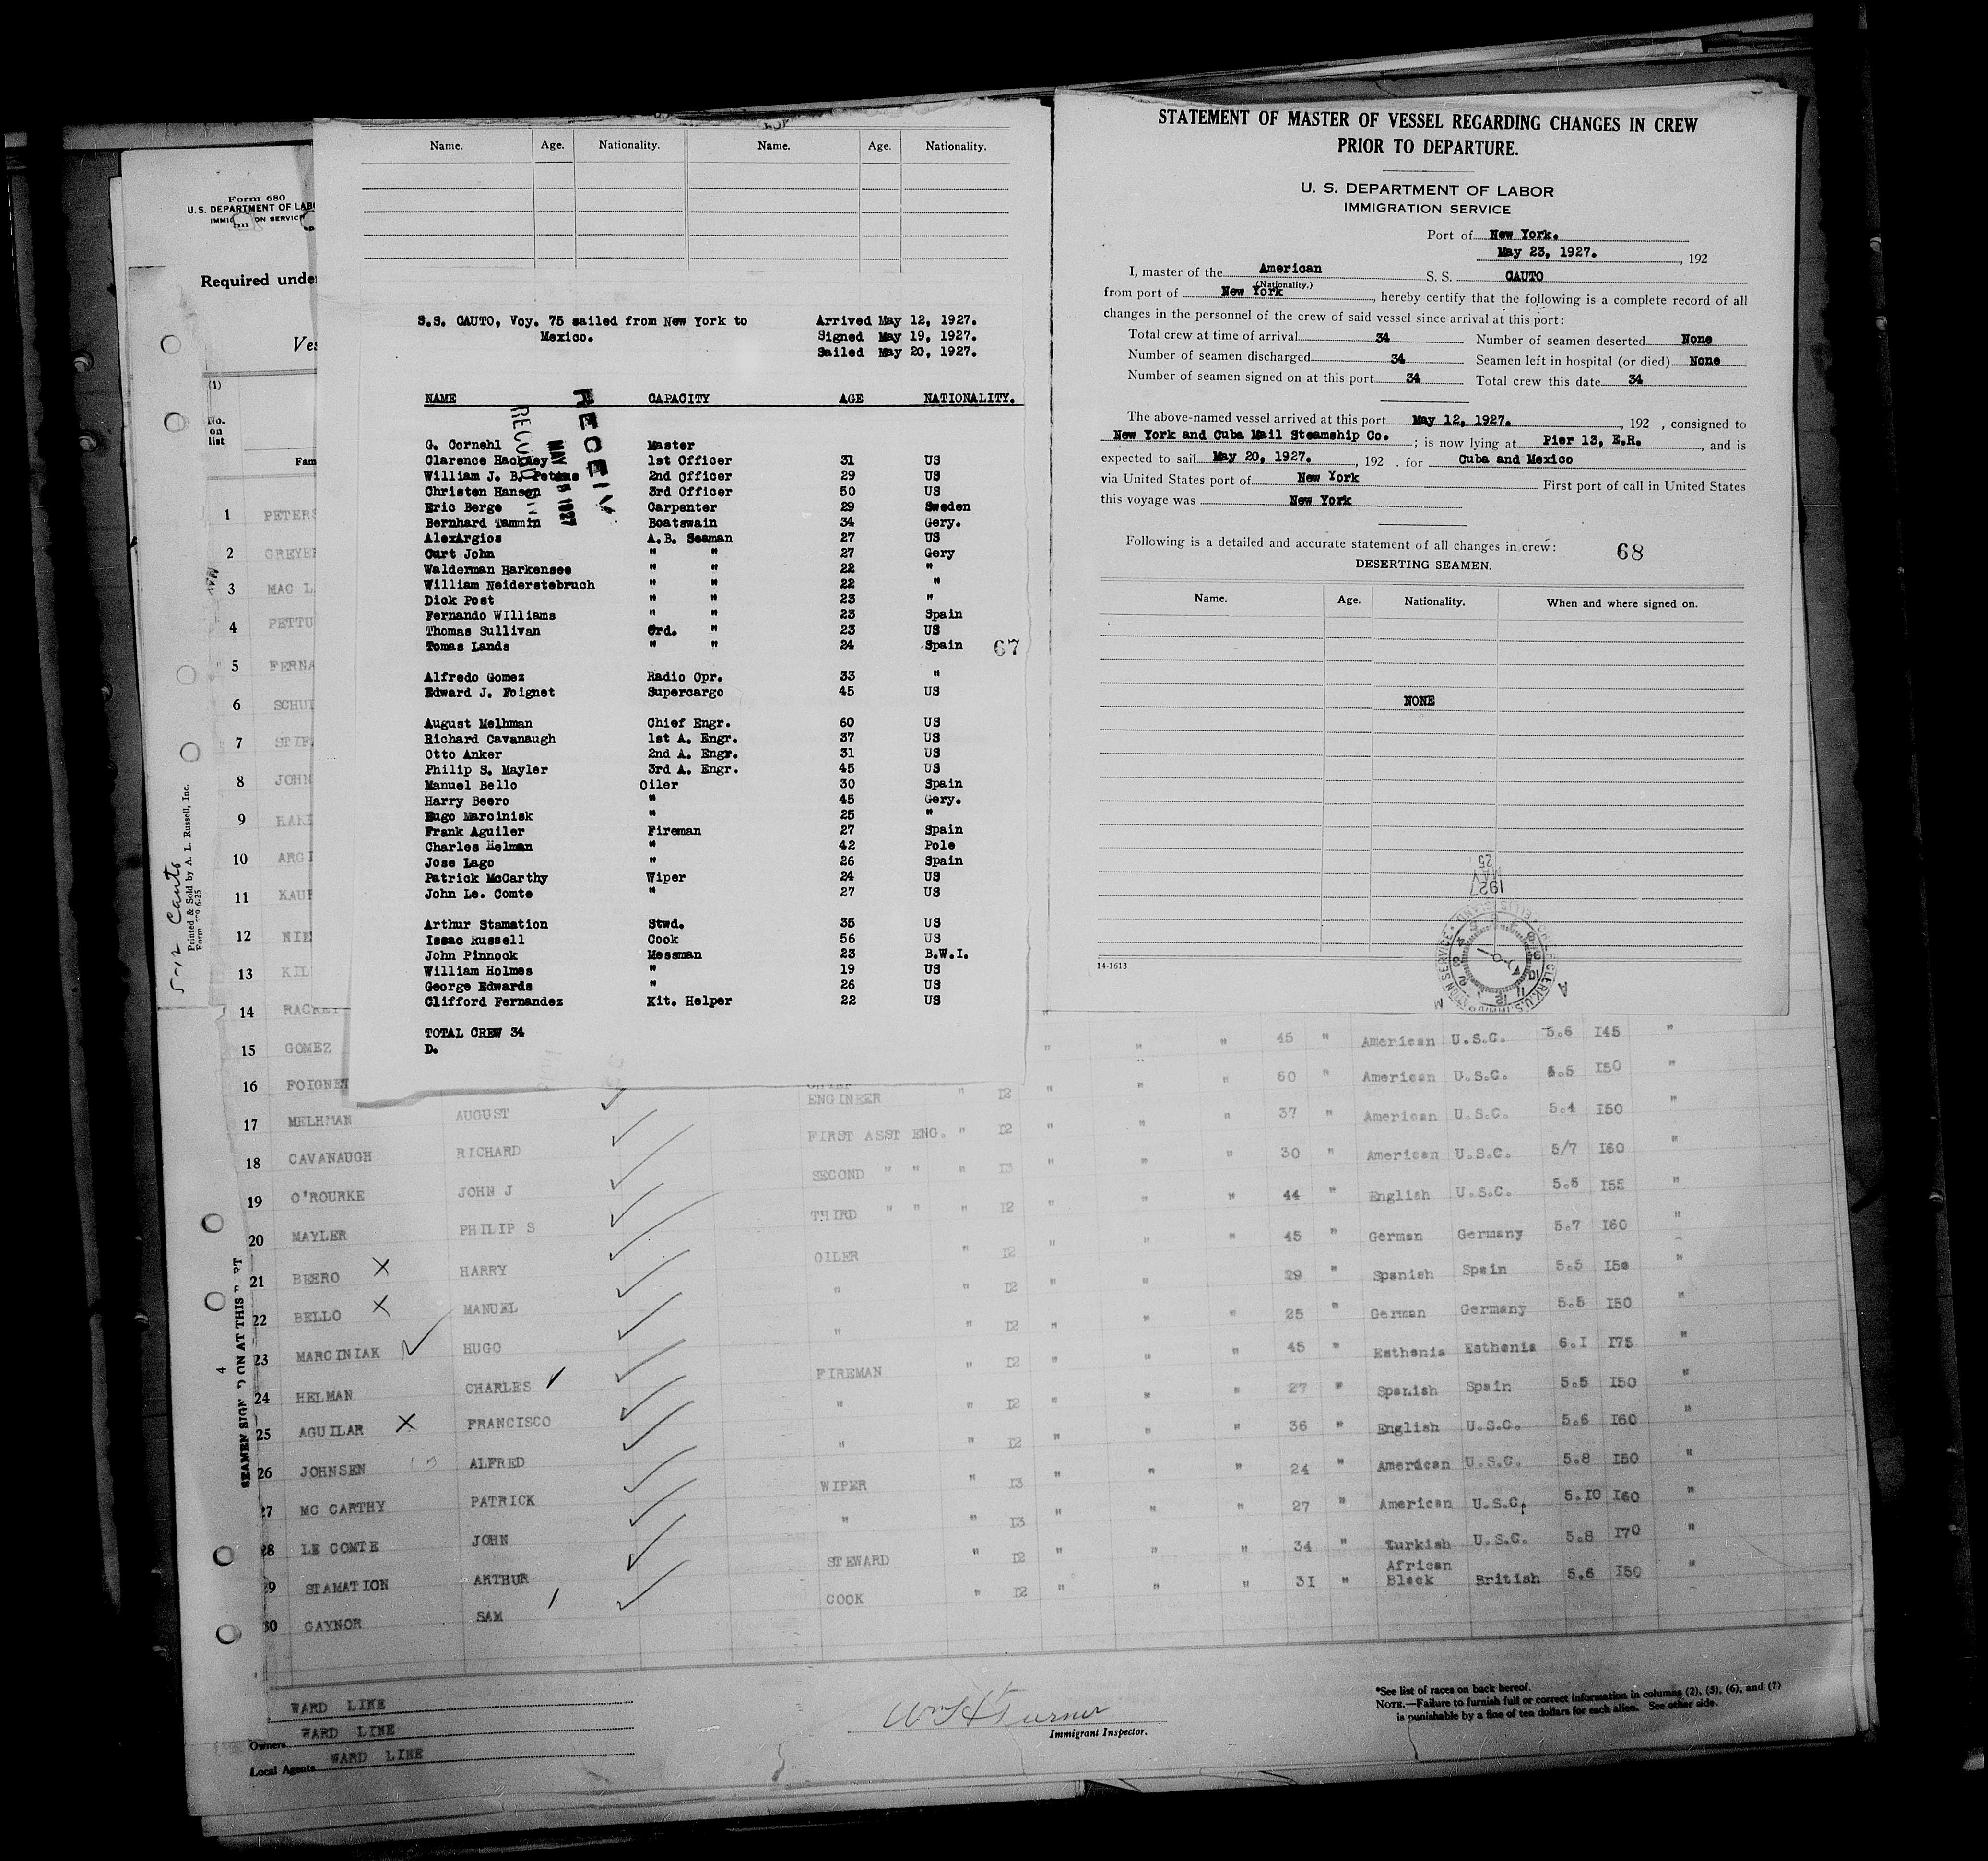 Form 680
U.S. DEPARTMENT OF LABO
IMMIG ON SERVICE
Required unde
Ves
(1)
No.
on
list
Fam
1 PETERS
2 GREYE
3 MAC L
4 PETTU
5 FERNA
6 SCHUL
7 STIF
8 JOHN
9 HAKE
10 ARGI
11 KAUF
12 NIE
13 KIL
14
15 GOMEZ
16 FOIGNET
5-12 Cauto
Printed & Sold by A. L. Russell, Inc.
Name. Age. Nationality. Name. Age. Nationality.
S.S. CAUTO, Voy. 75 sailed from New York to Arrived May 12, 1927.
Mexico. Signed May 19, 1927.
Sailed May 20, 1927.
NAME CAPACITY AGE NATIONALITY.
G. Cornehl Master
Clarence Hackney 1st Officer 31 US
William J. B. Peters 2nd Officer 29 US
Christen Hansen 3rd Officer 50 US
Eric Berge Carpenter 29 Sweden
Bernhard Tammin Boatswain 34 Gery.
AlexArgios A.B. Seaman 27 US
Curt John " " 27 Gery
Walderman Harkensee " " 22 "
William Neiderstebruch " " 22 "
Dick Post " " 23 "
Fernando WIlliams " " 23 Spain
Thomas Sullivan Ord. " 23 US
Tomas Lands " " 24 Spain
67
Alfredo Gomez Radio Opr. 33 "
Edward J. Foignet Supercargo 45 US
August Melhman Chief Engr. 60 US
Richard Cavanaugh 1st A. Engr. 37 US
Otto Anker 2nd A. Engr. 31 US
Philip S. Mayler 3rd A. Engr. 45 US
Manuel Bello Oiler 30 Spain
Harry Beero " 45 Gery.
Hugo Marcinisk " 25 "
Frank Aguiler Fireman 27 Spain
Charles Helman " 42 Pole
Jose Lago " 26 Spain
Patrick McCarthy Wiper 24 US
John Le. Comte " 27 US
Arthur Stamation Stwd. 35 US
Issac Russell Cook 56 US
John Pinnock Messman 23 B.W.I.
William Holmes " 19 US
George Edwards " 26 US
Clifford Fernandez Kit. Helper 22 US
TOTAL CREW 34
D.
RECEIV
MAY 1927
STATEMENT OF MASTER OF VESSEL REGARDING CHANGES IN CREW
PRIOR TO DEPARTURE.
U. S. DEPARTMENT OF LABOR
IMMIGRATION SERVICE
Port of New York.
May 23, 1927. , 192
I, master of the American S. S. CAUTO
(Nationality.)
from port of New York, hereby certify that the following is a complete record of all
changes in the personnel of the crew of said vessel since arrival at this port:
Total crew at time of arrival 34 Number of seamen deserted None
Number of seamen discharged 34 Seamen left in hospital (or died) None
Number of seamen signed on at this port 34 Total crew this date 34
The above-named vessel arrived at this port May 12, 1927. , 192 , consigned to
New York and Cuba Mail Steamship Co. ; is now lying at Pier 13, E.R. , and is
expected to sail May 20, 1927. , 192 . for Cuba and Mexico
via United States port of New York First port of call in United States
this voyage was New York
Following is a detailed and accurate statement of all changes in crew:
68
DESERTING SEAMEN.
Name. Age. Nationality. When and where signed on.
NONE
MAY 25 1927
14-1613
45 " American U.S.C. 5.6 145 "
" 60 " American U.S.C. 5.5 150 "
17 MELHMAN AUGUST ENGINEER " 12 " " " 37 " American U.S.C. 5.4 150 "
18 CAVANAUGH RICHARD FIRST ASST ENG. " 12 " " " 30 " American U.S.C. 5/7 160 "
19 O'ROURKE JOHN J SECOND " " " 13 " " " 44 " English U.S.C. 5.6 155 "
20 MAYLER PHILIP S THIRD " " " 12 " " " 45 " German Germany 5.7 160 "
21 BEERO X HARRY OILER " 12 " " 29 " Spanish Spain 5.5 150 "
22 BELLO X MANUEL " " 12 " " " 25 " German Germany 5.5 150 "
23 MARCINIAK HUGO " " 12 " " " 45 " Esthonia Esthonia 6.1 175 "
24 HELMAN CHARLES FIREMAN " 12 " " " 27 " Spanish Spain 5.5 150 "
25 AGUILAR X FRANCISCO " " 12 " " " 36 " English U.S.C. 5.6 160 "
26 JOHNSEN ALFRED " " 12 " " " 24 " American U.S.C. 5.8 150 "
27 MC CARTHY PATRICK WIPER " 13 " " " 27 " American U.S.C. 5.10 160 "
28 LE COMTE JOHN " " 13 " " " 34 " Turkish U.S.C. 5.8 170 "
29 STAMATION ARTHUR STEWARD " 12 " " " 31 " African Black British 5.6 150 "
30 GAYNOR SAM COOK " 12
4
SEAMEN SIGN D ON AT THIS P RT
WARD LINE
Owners WARD LINE
Local Agents WARD LINE
Wm H Turner
Immigrant Inspector.
*See list of races on back hereof.
NOTE.—Failure to furnish full or correct information in columns (2), (5), (6), and (7)
is punishable by a fine of ten dollars for each alien. See other side.